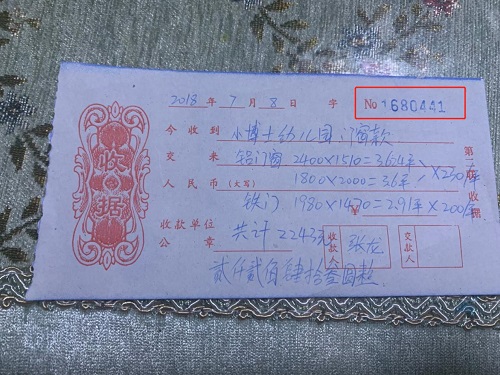 2018 年 7 月 8 日 字 No 1680441
今收到 小博士幼儿园门窗款
交来 铝门窗 2400×1510=3.64平
人民币(大写) 1800×2000=3.6平 ×230/平
铁门 1980×1470=2.91平×200/平
收款单位公章 共计 2243元 收款人 张龙 交款人
贰仟贰佰肆拾叁圆整
收据
第二联 收据